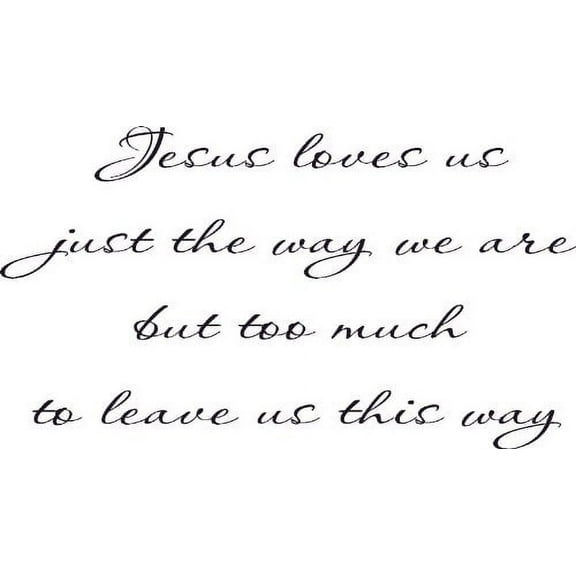 Jesus loves us
just the way we are
but too much
to leave us this way